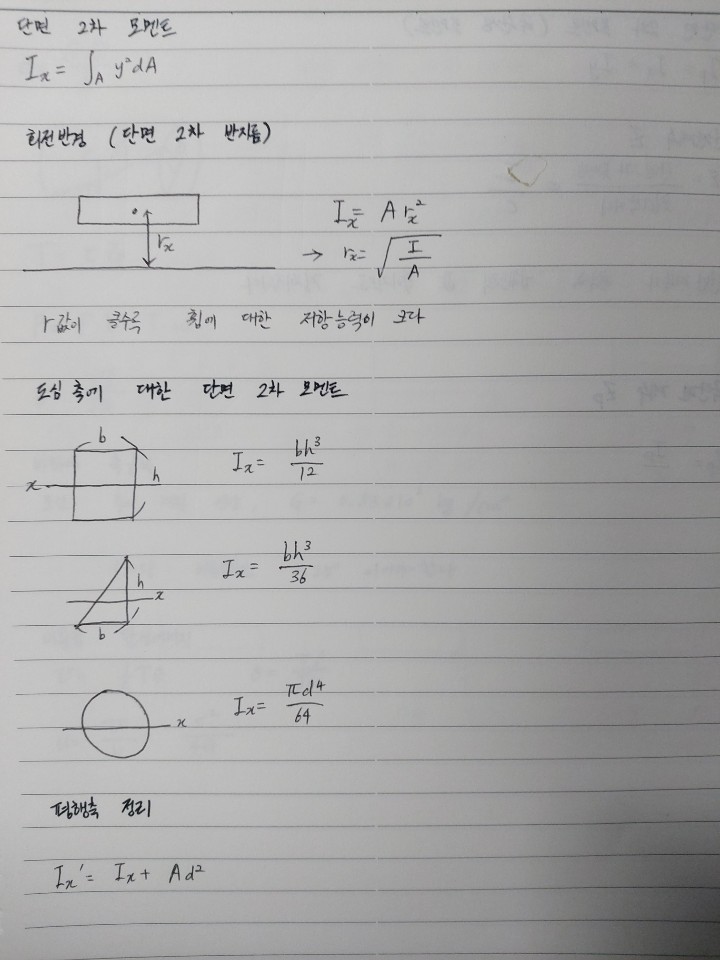 단면 2차 모멘트
Ix = ∫A y²dA
회전반경 (단면 2차 반지름)
Ix = A rx²
rx
→ rx = √(I/A)
r값이 클수록 휨에 대한 저항능력이 크다
도심축에 대한 단면 2차 모멘트
b
x
h
Ix = bh³/12
h
x
b
Ix = bh³/36
x
Ix = πd⁴/64
평행축 정리
Ix' = Ix + Ad²